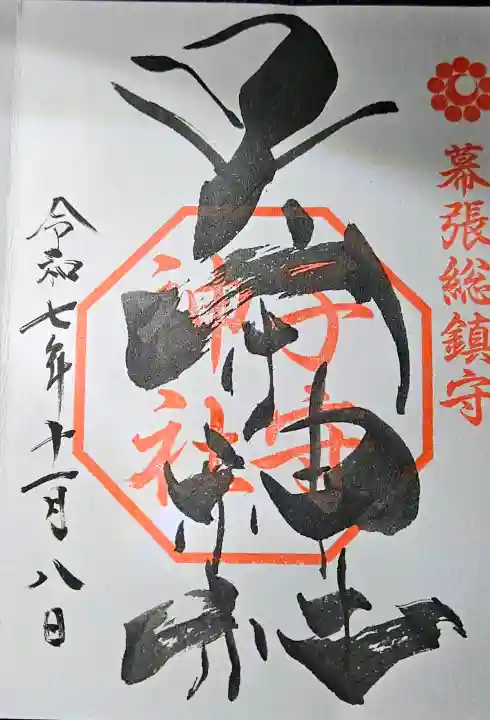 幕張総鎮守
子守神社
子守
神社
令和七年十一月八日